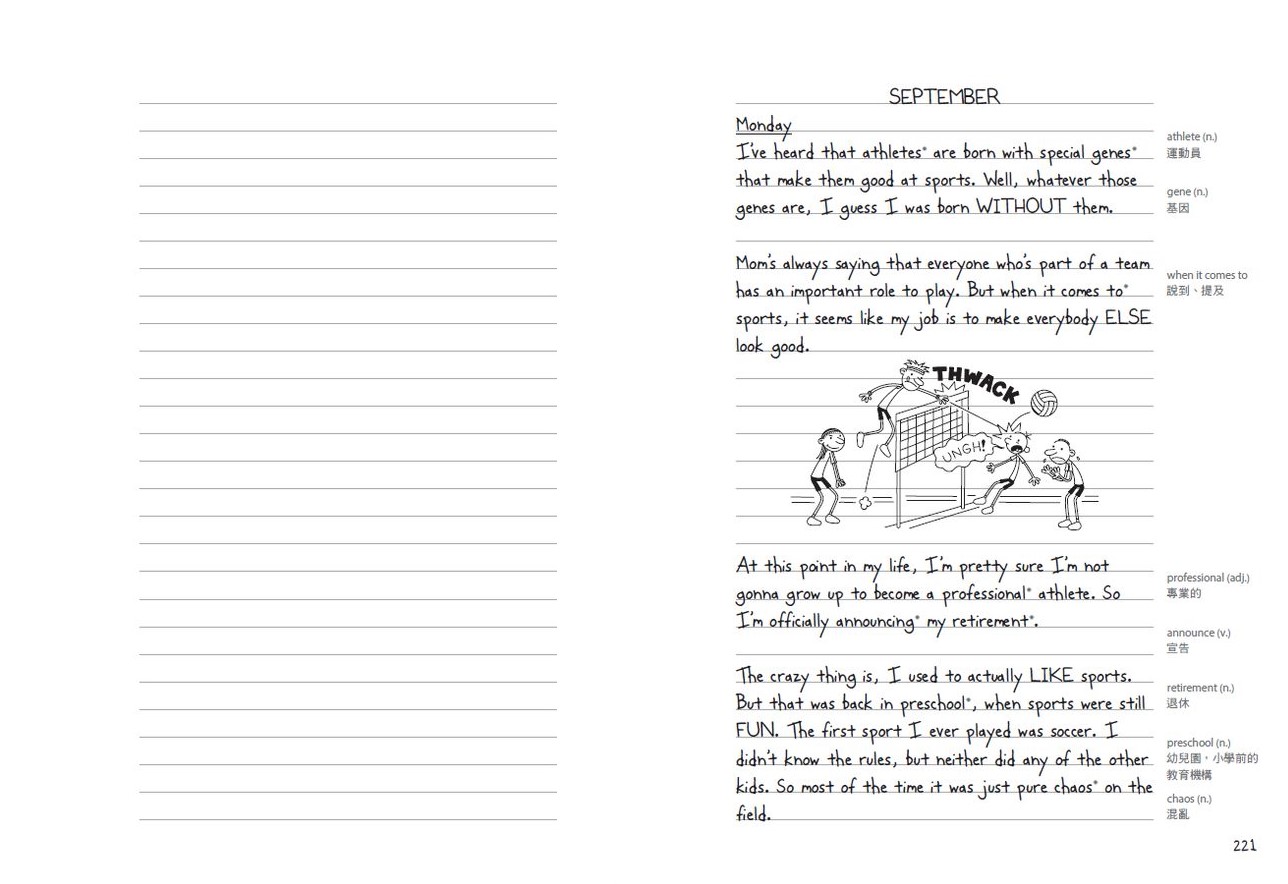 SEPTEMBER
Monday
I've heard that athletes* are born with special genes*
that make them good at sports. Well, whatever those
genes are, I guess I was born WITHOUT them.
Mom's always saying that everyone who's part of a team
has an important role to play. But when it comes to*
sports, it seems like my job is to make everybody ELSE
look good.
THWACK
UNGH!
At this point in my life, I'm pretty sure I'm not
gonna grow up to become a professional* athlete. So
I'm officially announcing* my retirement*.
The crazy thing is, I used to actually LIKE sports.
But that was back in preschool*, when sports were still
FUN. The first sport I ever played was soccer. I
didn't know the rules, but neither did any of the other
kids. So most of the time it was just pure chaos* on the
field.
athlete (n.)
運動員
gene (n.)
基因
when it comes to
說到、提及
professional (adj.)
專業的
announce (v.)
宣告
retirement (n.)
退休
preschool (n.)
幼兒園，小學前的
教育機構
chaos (n.)
混亂
221